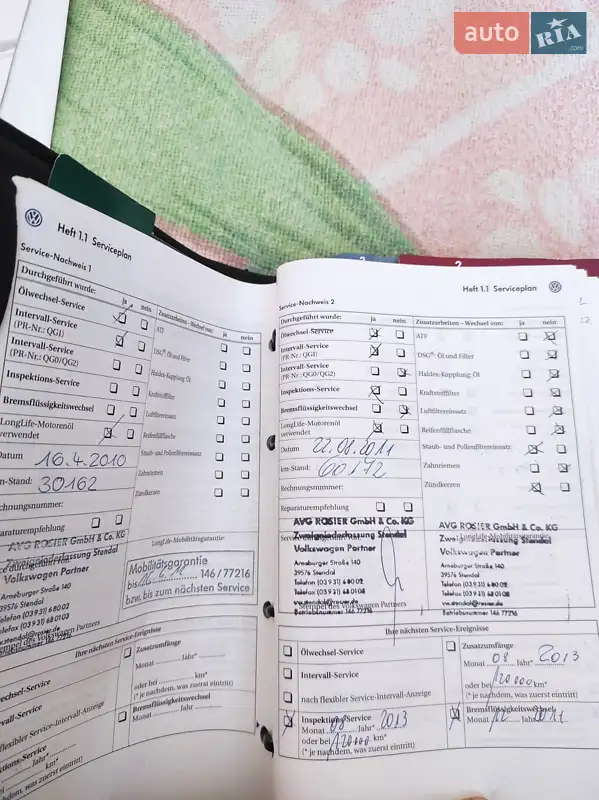 auto RIA .com
Heft 1.1 Serviceplan
Service-Nachweis 1
Durchgeführt wurde:
ja nein
Ölwechsel-Service
Intervall-Service
(PR-Nr.: QG1)
Intervall-Service
(PR-Nr.: QG0/QG2)
Inspektions-Service
Bremsflüssigkeitswechsel
LongLife-Motorenöl
verwendet
Datum 16.4.2010
km-Stand: 30162
Rechnungsnummer:
Reparaturempfehlung
Zusatzarbeiten - Wechsel von: ja nein
ATF
DSG®: Öl und Filter
Haldex-Kupplung: Öl
Kraftstofffilter
Luftfiltereinsatz
Reifenfüllflasche
Staub- und Pollenfiltereinsatz
Zahnriemen
Zündkerzen
AVG ROSIER GmbH & Co. KG
Zweigniederlassung Stendal
Volkswagen Partner
Arneburger Straße 140
39576 Stendal
Telefon (03931) 6800
Telefax (03931) 680108
LongLife-Mobilitätsgarantie:
Mobilitätsgarantie
bis 146/77216
bzw. bis zum nächsten Service
Ihre nächsten Service-Ereignisse
Zusatzumfänge
Monat Jahr*
oder bei km*
(* je nachdem, was zuerst eintritt)
Bremsflüssigkeitswechsel
Monat Jahr
Heft 1.1 Serviceplan
Service-Nachweis 2
Durchgeführt wurde: ja nein
Ölwechsel-Service
Intervall-Service
(PR-Nr.: QG1)
Intervall-Service
(PR-Nr.: QG0/QG2)
Inspektions-Service
Bremsflüssigkeitswechsel
LongLife-Motorenöl
verwendet
Datum 22.08.2011
km-Stand:
Rechnungsnummer:
Reparaturempfehlung
Zusatzarbeiten - Wechsel von: ja nein
ATF
DSG®: Öl und Filter
Haldex-Kupplung: Öl
Kraftstofffilter
Luftfiltereinsatz
Reifenfüllflasche
Staub- und Pollenfiltereinsatz
Zahnriemen
Zündkerzen
AVG ROSIER GmbH & Co. KG
Zweigniederlassung Stendal
Volkswagen Partner
Arneburger Straße 140
39576 Stendal
Telefax (03931) 680108
Stempel des Volkswagen Partners
Betriebsnummer 146 77216
AVG ROSIER GmbH & Co. KG
Volkswagen Partner
Arneburger Straße 140
39576 Stendal
Telefax (03931) 680108
Betriebsnummer 146 77216
Ihre nächsten Service-Ereignisse
Ölwechsel-Service
Intervall-Service
nach flexibler Service-Intervall-Anzeige
Inspektions-Service
Monat 08 Jahr* 2013
oder bei 120000 km*
(* je nachdem, was zuerst eintritt)
Zusatzumfänge
Monat 08 Jahr* 2013
oder bei 120000 km*
(* je nachdem, was zuerst eintritt)
Bremsflüssigkeitswechsel
Monat Jahr 2011